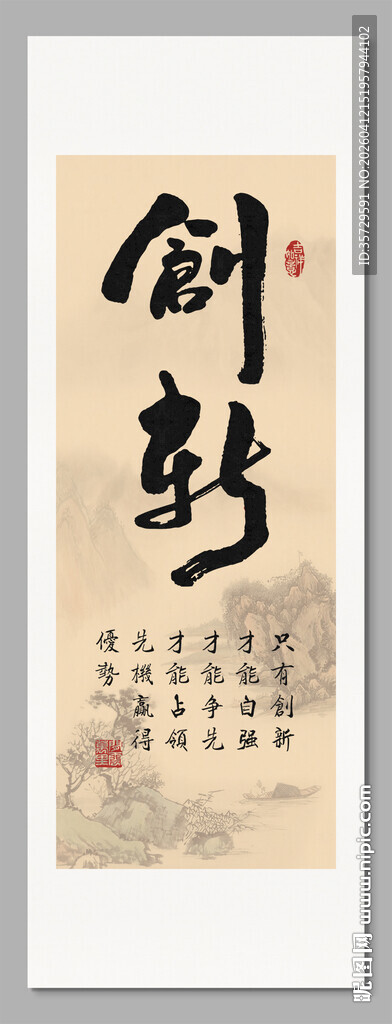 創新
只有創新
才能自强
才能争先
才能占領
先機贏得
優勢
ID:35729591 NO:20260412151957944102
昵图网 www.nipic.com